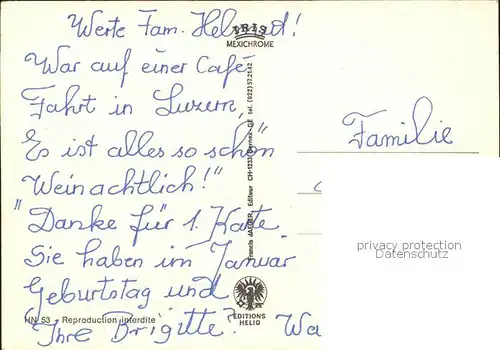 Werte Fam. Helmut!
War auf einer Café
Fahrt in Luzern,
Es ist alles so schön"
Weinachtlich!"
"Danke für 1. Karte.
Sie haben im Januar
Geburtstag und
Ihre Brigitte? Wa
Familie
IRIS
MEXICHROME
Francis JAEGER, Editeur CH-1233 Bernex-GE tel. (022) 57.21.42
HN 53 - Reproduction interdite
EDITIONS
HELIO
privacy protection
Datenschutz